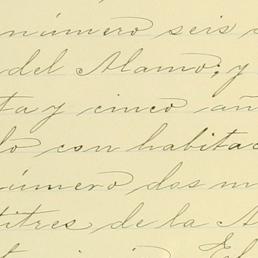 número seis
del Alamo; y
ta y cinco añ
lo con habitac
número dos m
titres de la A
El